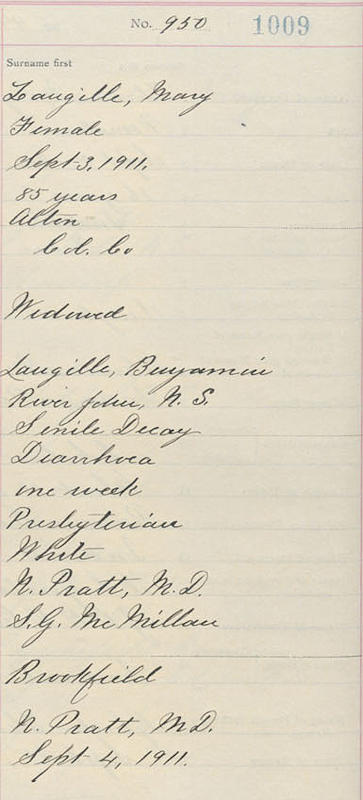 No. 950 1009
Surname first
Langille, Mary
Female
Sept 3, 1911.
85 years
Alton
Col. Co
Widowed
Langille, Benjamin
River John, N. S.
Senile Decay
Diarrhoea
one week
Presbyterian
White
N. Pratt, M.D.
S.G. McMillan
Brookfield
N. Pratt, M.D.
Sept 4, 1911.